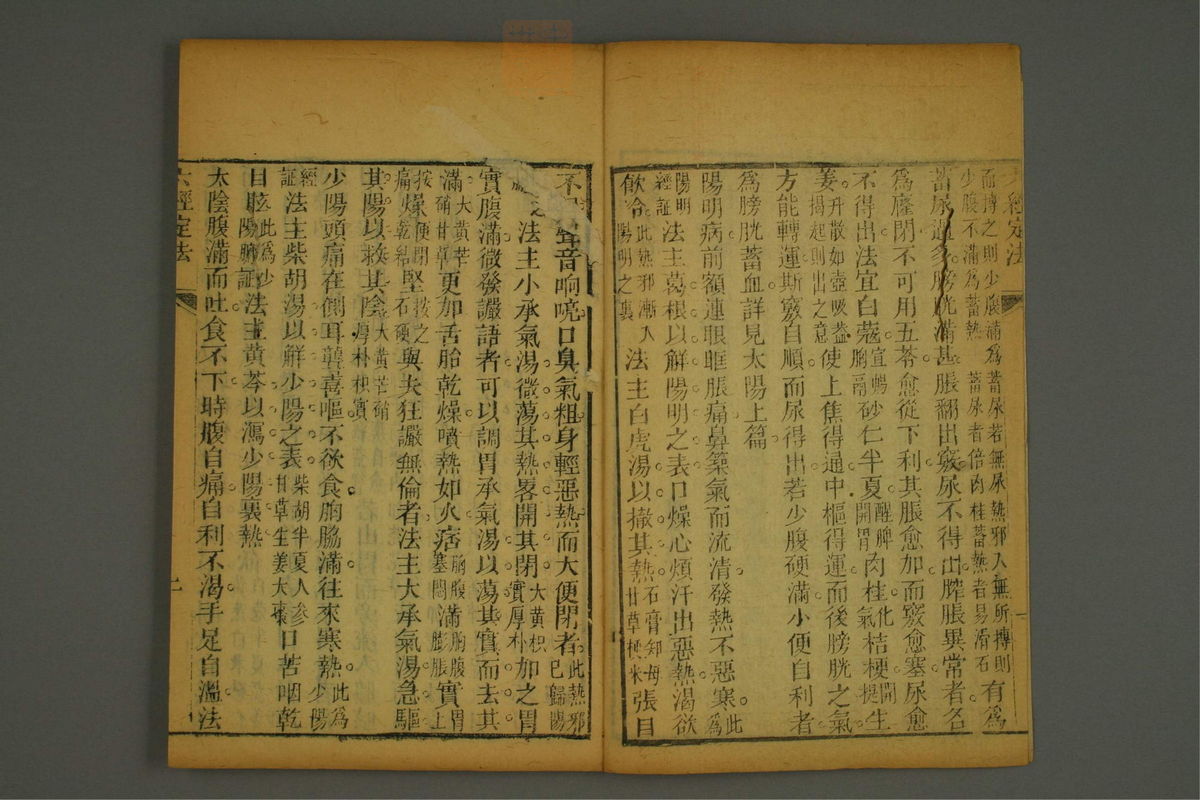 六經定法
而摶之則少腹滿爲蓄尿若無尿熱邪入無所摶則少腹不滿爲蓄熱蓄尿者倍肉桂蓄熱者易滑石有爲
蓄尿過多膀胱滿甚脹翻出竅尿不得出脹異常者名
爲癃閉不可用五苓愈從下利其脹愈加而竅愈塞尿愈
不得出法宜白蔻宜暢胸膈砂仁半夏醒脾開胃肉桂化氣桔梗開提生
姜升散如壺吸盖揭起則出之意使上焦得通中樞得運而後膀胱之氣
方能轉運斯竅自順而尿得出若少腹硬滿小便自利者
爲膀胱蓄血詳見太陽上篇
陽明病前額連眼眶脹痛鼻築氣而流清發熱不惡寒此爲
陽明經証法主葛根以解陽明之表口燥心煩汗出惡熱渴欲
飲冷此熱邪漸入陽明之裏法主白虎湯以撤其熱石膏知母甘草梗米張目
不聲音响喨口臭氣粗身輕惡熱而大便閉者此熱邪已歸陽
之法主小承氣湯微蕩其熱畧開其閉大黃枳實厚朴加之胃
實腹滿微發讝語者可以調胃承氣湯以蕩其實而去其
滿大黃芒硝甘草更加舌胎乾燥噴熱如火痞胸腹塞悶滿胸腹膨脹實胃上
按痛燥便閉乾結堅按之石硬與夫狂讝無倫者法主大承氣湯急驅
其陽以救其陰大黃芒硝厚朴枳實
少陽頭痛在側耳聾喜嘔不欲食胸脇滿往來寒熱此爲少陽
經証法主柴胡湯以解少陽之表柴胡半夏人參甘草生姜大棗口苦咽乾
目眩此爲少陽腑証法主黃芩以瀉少陽裏熱
太陰腹滿而吐食不下時腹自痛自利不渴手足自溫法
六經定法